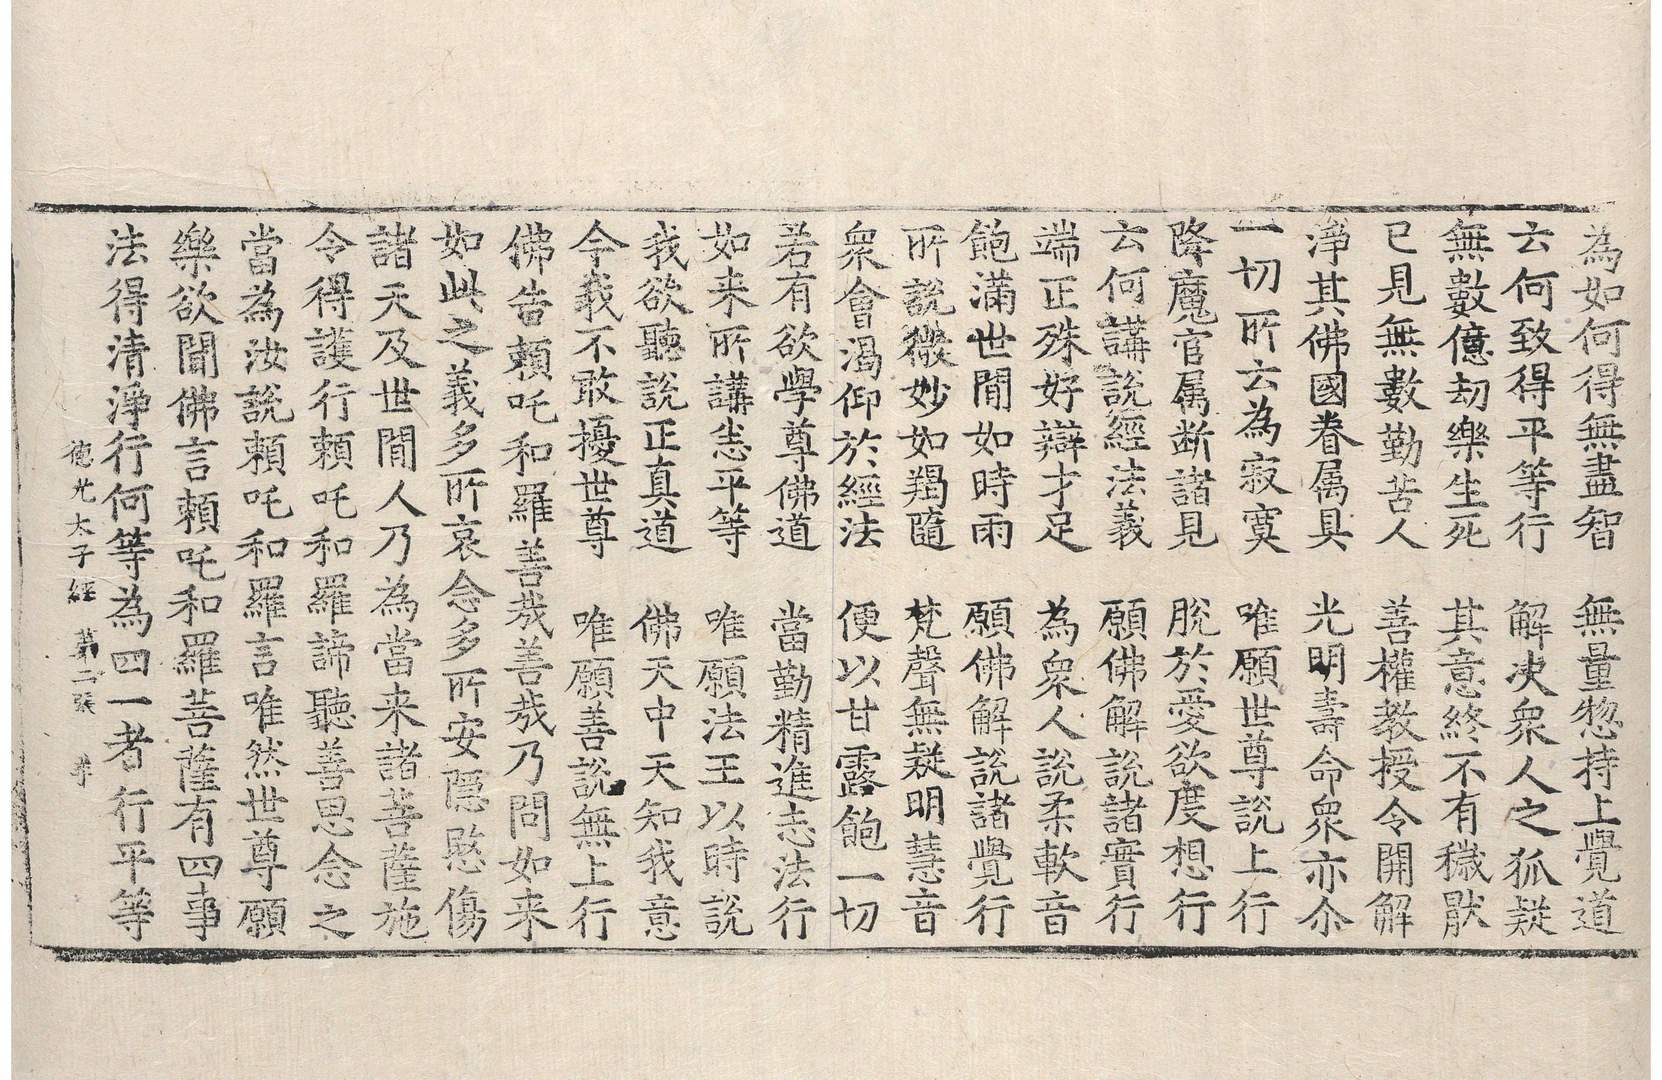 為如何得無盡智　無量惣持上覺道
云何致得平等行　解決衆人之狐疑
無數億劫樂生死　其意終不有穢猒
已見無數勤苦人　善權教授令開解
淨其佛國眷属具　光明壽命衆亦尒
一切所云為寂寞　唯願世尊說上行
降魔官属断諸見　脫於愛欲度想行
云何講說經法義　願佛解說諸實行
端正殊好辯才足　為衆人說柔軟音
飽滿世間如時雨　願佛解說諸覺行
所說微妙如羯隨　梵聲無疑明慧音
衆會渴仰於經法　便以甘露飽一切
若有欲學尊佛道　當勤精進志法行
如来所講悉平等　唯願法王以時說
我欲聽說正真道　佛天中天知我意
今我不敢擾世尊　唯願善說無上行
佛告賴吒和羅善哉善哉乃問如来
如此之義多所哀念多所安隱愍傷
諸天及世間人乃為當来諸菩薩施
令得護行賴吒和羅諦聽善思念之
當為汝說賴吒和羅言唯然世尊願
樂欲聞佛言賴吒和羅菩薩有四事
法得清淨行何等為四一者行平等
德光太子經　第二張